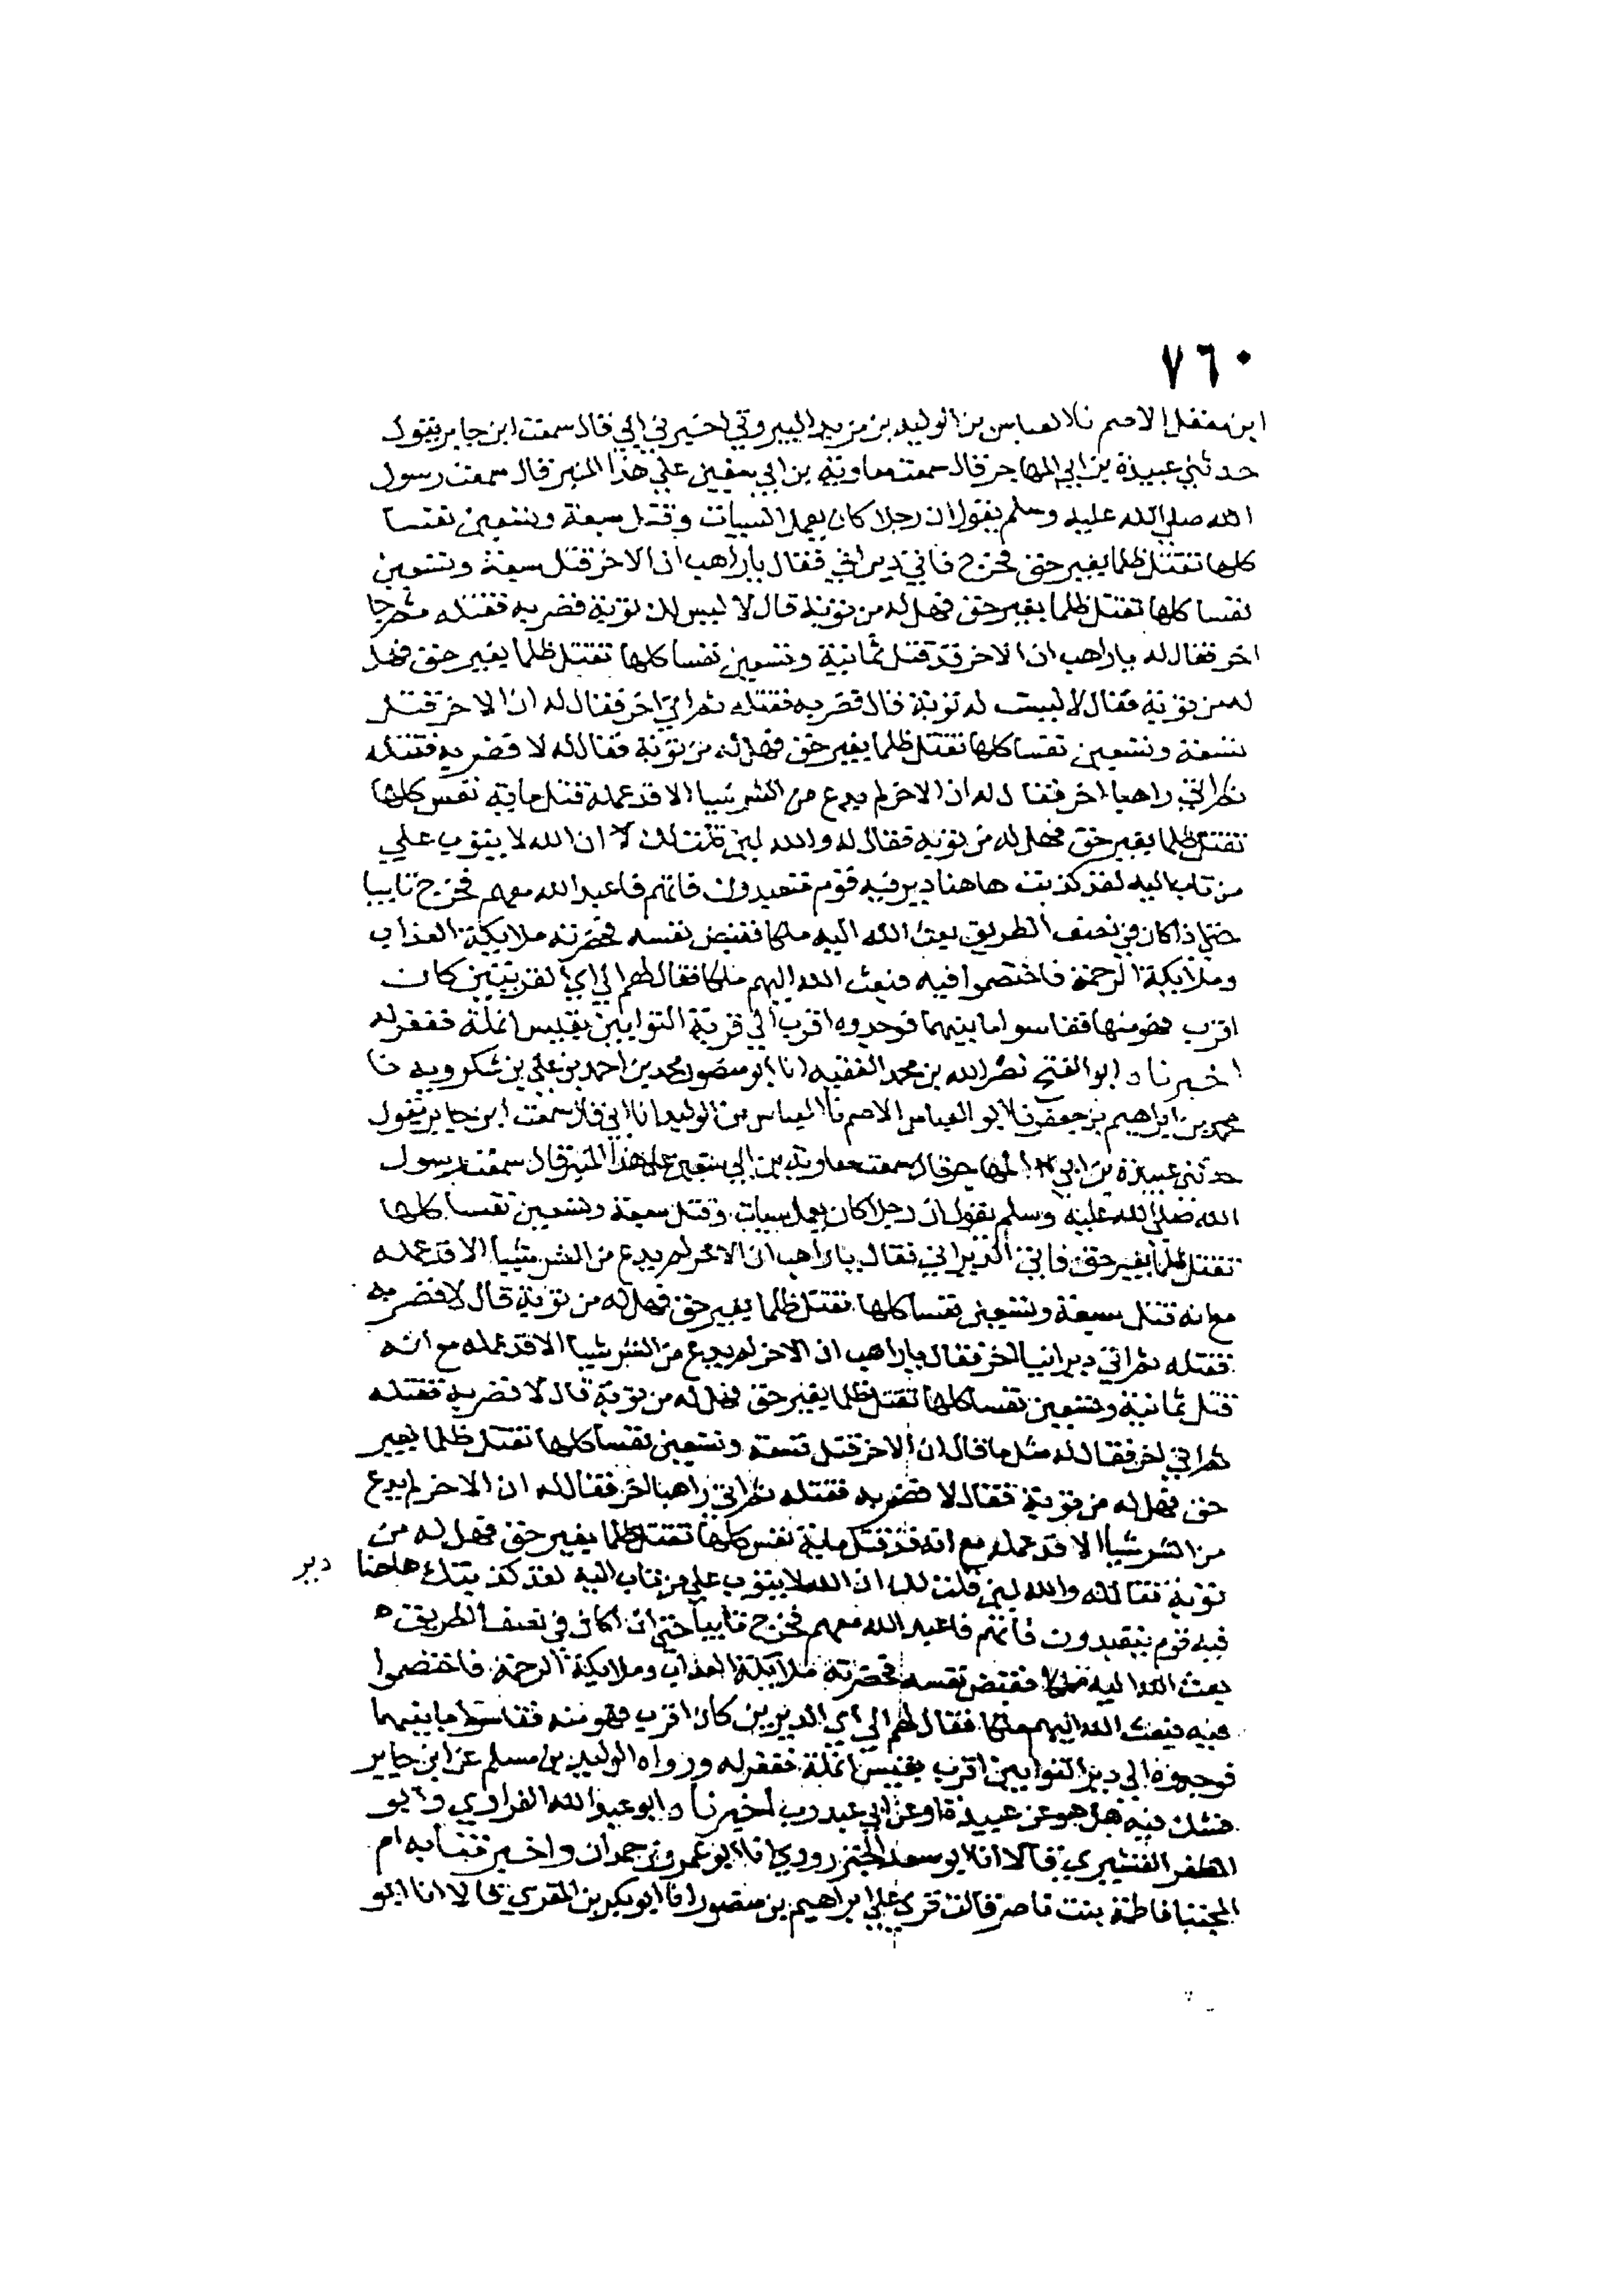 ٧٦٠
ابن معقل الاصم نا العباس بن الوليد بن مزيد البيروتي اخبرني ابي قال سمعت ابن جابر يقول
حدثني عبيدة بن ابي المهاجر قال سمعت معاوية بن ابي سفين علي هذا المنبر قال سمعت رسول
الله صلي الله عليه وسلم يقول ان رجلا كان يعمل السيات وقتل سبعة وتسعين نفسا
كلها تقتل ظلما بغير حق فخرج فاتي ديراني فقال ياراهب ان الاخر قتل سبعة وتسعين
نفسا كلها تقتل ظلما بغير حق فهل له من توبة قال لا ليس لك توبة فضربه فقتله ثم جا
اخر فقال له ياراهب ان الاخر قد قتل ثمانية وتسعين نفسا كلها تقتل ظلما بغير حق فهل
له من توبة فقال لا ليست له توبة قال فضربه فقتله ثم اتي اخر فقال له ان الاخر قتل
تسعة وتسعين نفسا كلها تقتل ظلما بغير حق فهل له من توبة فقال له لا فضربه فقتله
ثم اتي راهبا اخر فقال له ان الاخر لم يدع من الشر شيا الا قد عمله قتل ماية نفس كلها
تقتل ظلما بغير حق فهل له من توبة فقال له والله لين قلت لك لا ان الله لا يتوب علي
من تاب اليه لقد كذبت هاهنا دير فيه قوم متعبدون فاتهم فاعبد الله معهم فخرج تايبا
حتي اذا كان في نصف الطريق بعث الله اليه ملكا فقبض نفسه فحضرته ملايكة العذاب
وملايكة الرحمة فاختصموا فيه فبعث الله اليهم ملكا فقال لهم الي اي القريتين كان
اقرب فهو منها فقاسوا ما بينهما فوجدوه اقرب الي قرية التوابين بقيس انملة فغفر له
اخبرنا ابو الفتح نصر الله بن محمد الفقيه انا ابو منصور محمد بن احمد بن علي بن شكرويه نا
محمد بن ابراهيم بن جعفر نا ابو العباس الاصم نا العباس بن الوليد انا ابي قال سمعت ابن جابر يقول
حدثني عبيدة بن ابي المهاجر قال سمعت معاوية بن ابي سفين علي هذا المنبر قال سمعت رسول
الله صلي الله عليه وسلم يقول ان رجلا كان يعمل سيات وقتل سبعة وتسعين نفسا كلها
تقتل ظلما بغير حق فاتي الديراني فقال ياراهب ان الاخر لم يدع من الشر شيا الا قد عمله
مع انه قتل سبعة وتسعين نفسا كلها تقتل ظلما بغير حق فهل له من توبة قال لا فضربه
فقتله ثم اتي ديرانيا اخر فقال ياراهب ان الاخر لم يدع من الشر شيا الا قد عمله مع انه
قتل ثمانية وتسعين نفسا كلها تقتل ظلما بغير حق فهل له من توبة قال لا فضربه فقتله
ثم اتي اخر فقال له مثل ما قال ان الاخر قتل تسعة وتسعين نفسا كلها تقتل ظلما بغير
حق فهل له من توبة فقال لا فضربه فقتله ثم اتي راهبا اخر فقال له ان الاخر لم يدع
من الشر شيا الا قد عمله مع انه قد قتل ماية نفس كلها تقتل ظلما بغير حق فهل له من
توبة فقال له والله لين قلت لك ان الله لا يتوب علي من تاب اليه لقد كذبتك هاهنا دير
فيه قوم يتعبدون فاتهم فاعبد الله معهم فخرج تايبا حتي اذا كان في نصف الطريق
بعث الله اليه ملكا فقبض نفسه فحضرته ملايكة العذاب وملايكة الرحمة فاختصموا
فيه فبعث الله اليهم ملكا فقال لهم الي اي الديرين كان اقرب فهو منه فقاسوا ما بينهما
فوجدوه الي دير التوابين اقرب بقيس انملة فغفر له ورواه الوليد بن مسلم عن ابن جابر
فشك فيه هل هو عن عبيدة او عن ابي عبد رب اخبرنا ابو عبد الله الفراوي وابو
المظفر القشيري قالا انا ابو سعد الجنزرودي انا ابو عمرو بن حمدان واخبرتنا به ام
المجتبا فاطمة بنت ناصر قالت قري علي ابراهيم بن منصور انا ابو بكر بن المقري قالا انا ابو